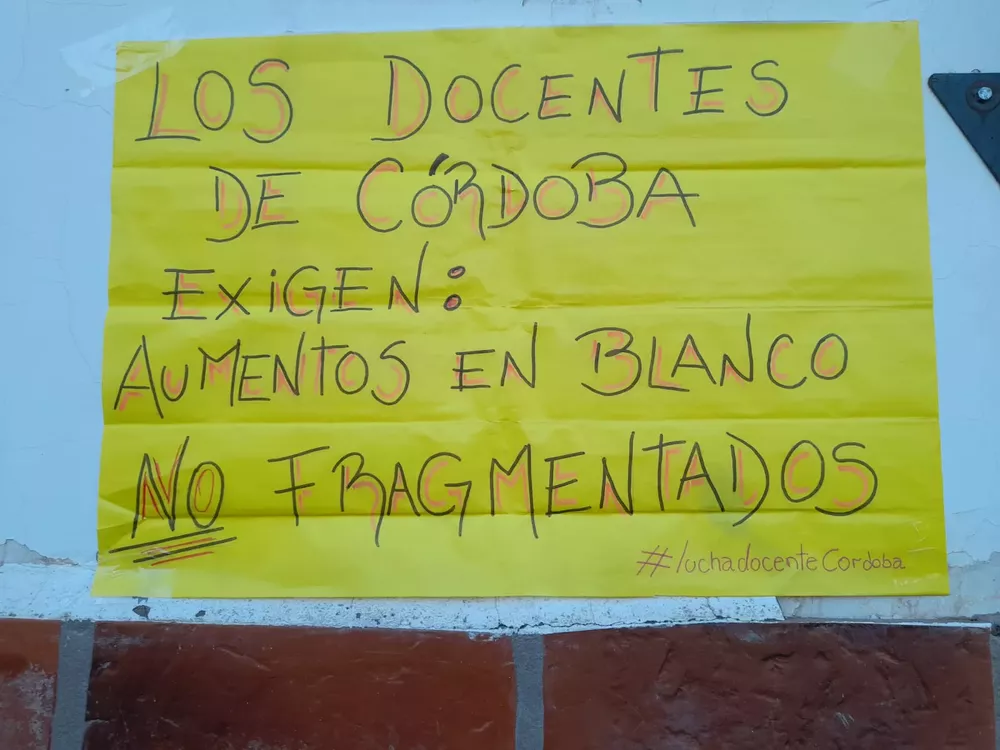 LOS DOCENTES
DE CÓRDOBA
EXIGEN:
AUMENTOS EN BLANCO
NO FRAGMENTADOS
#luchadocenteCordoba